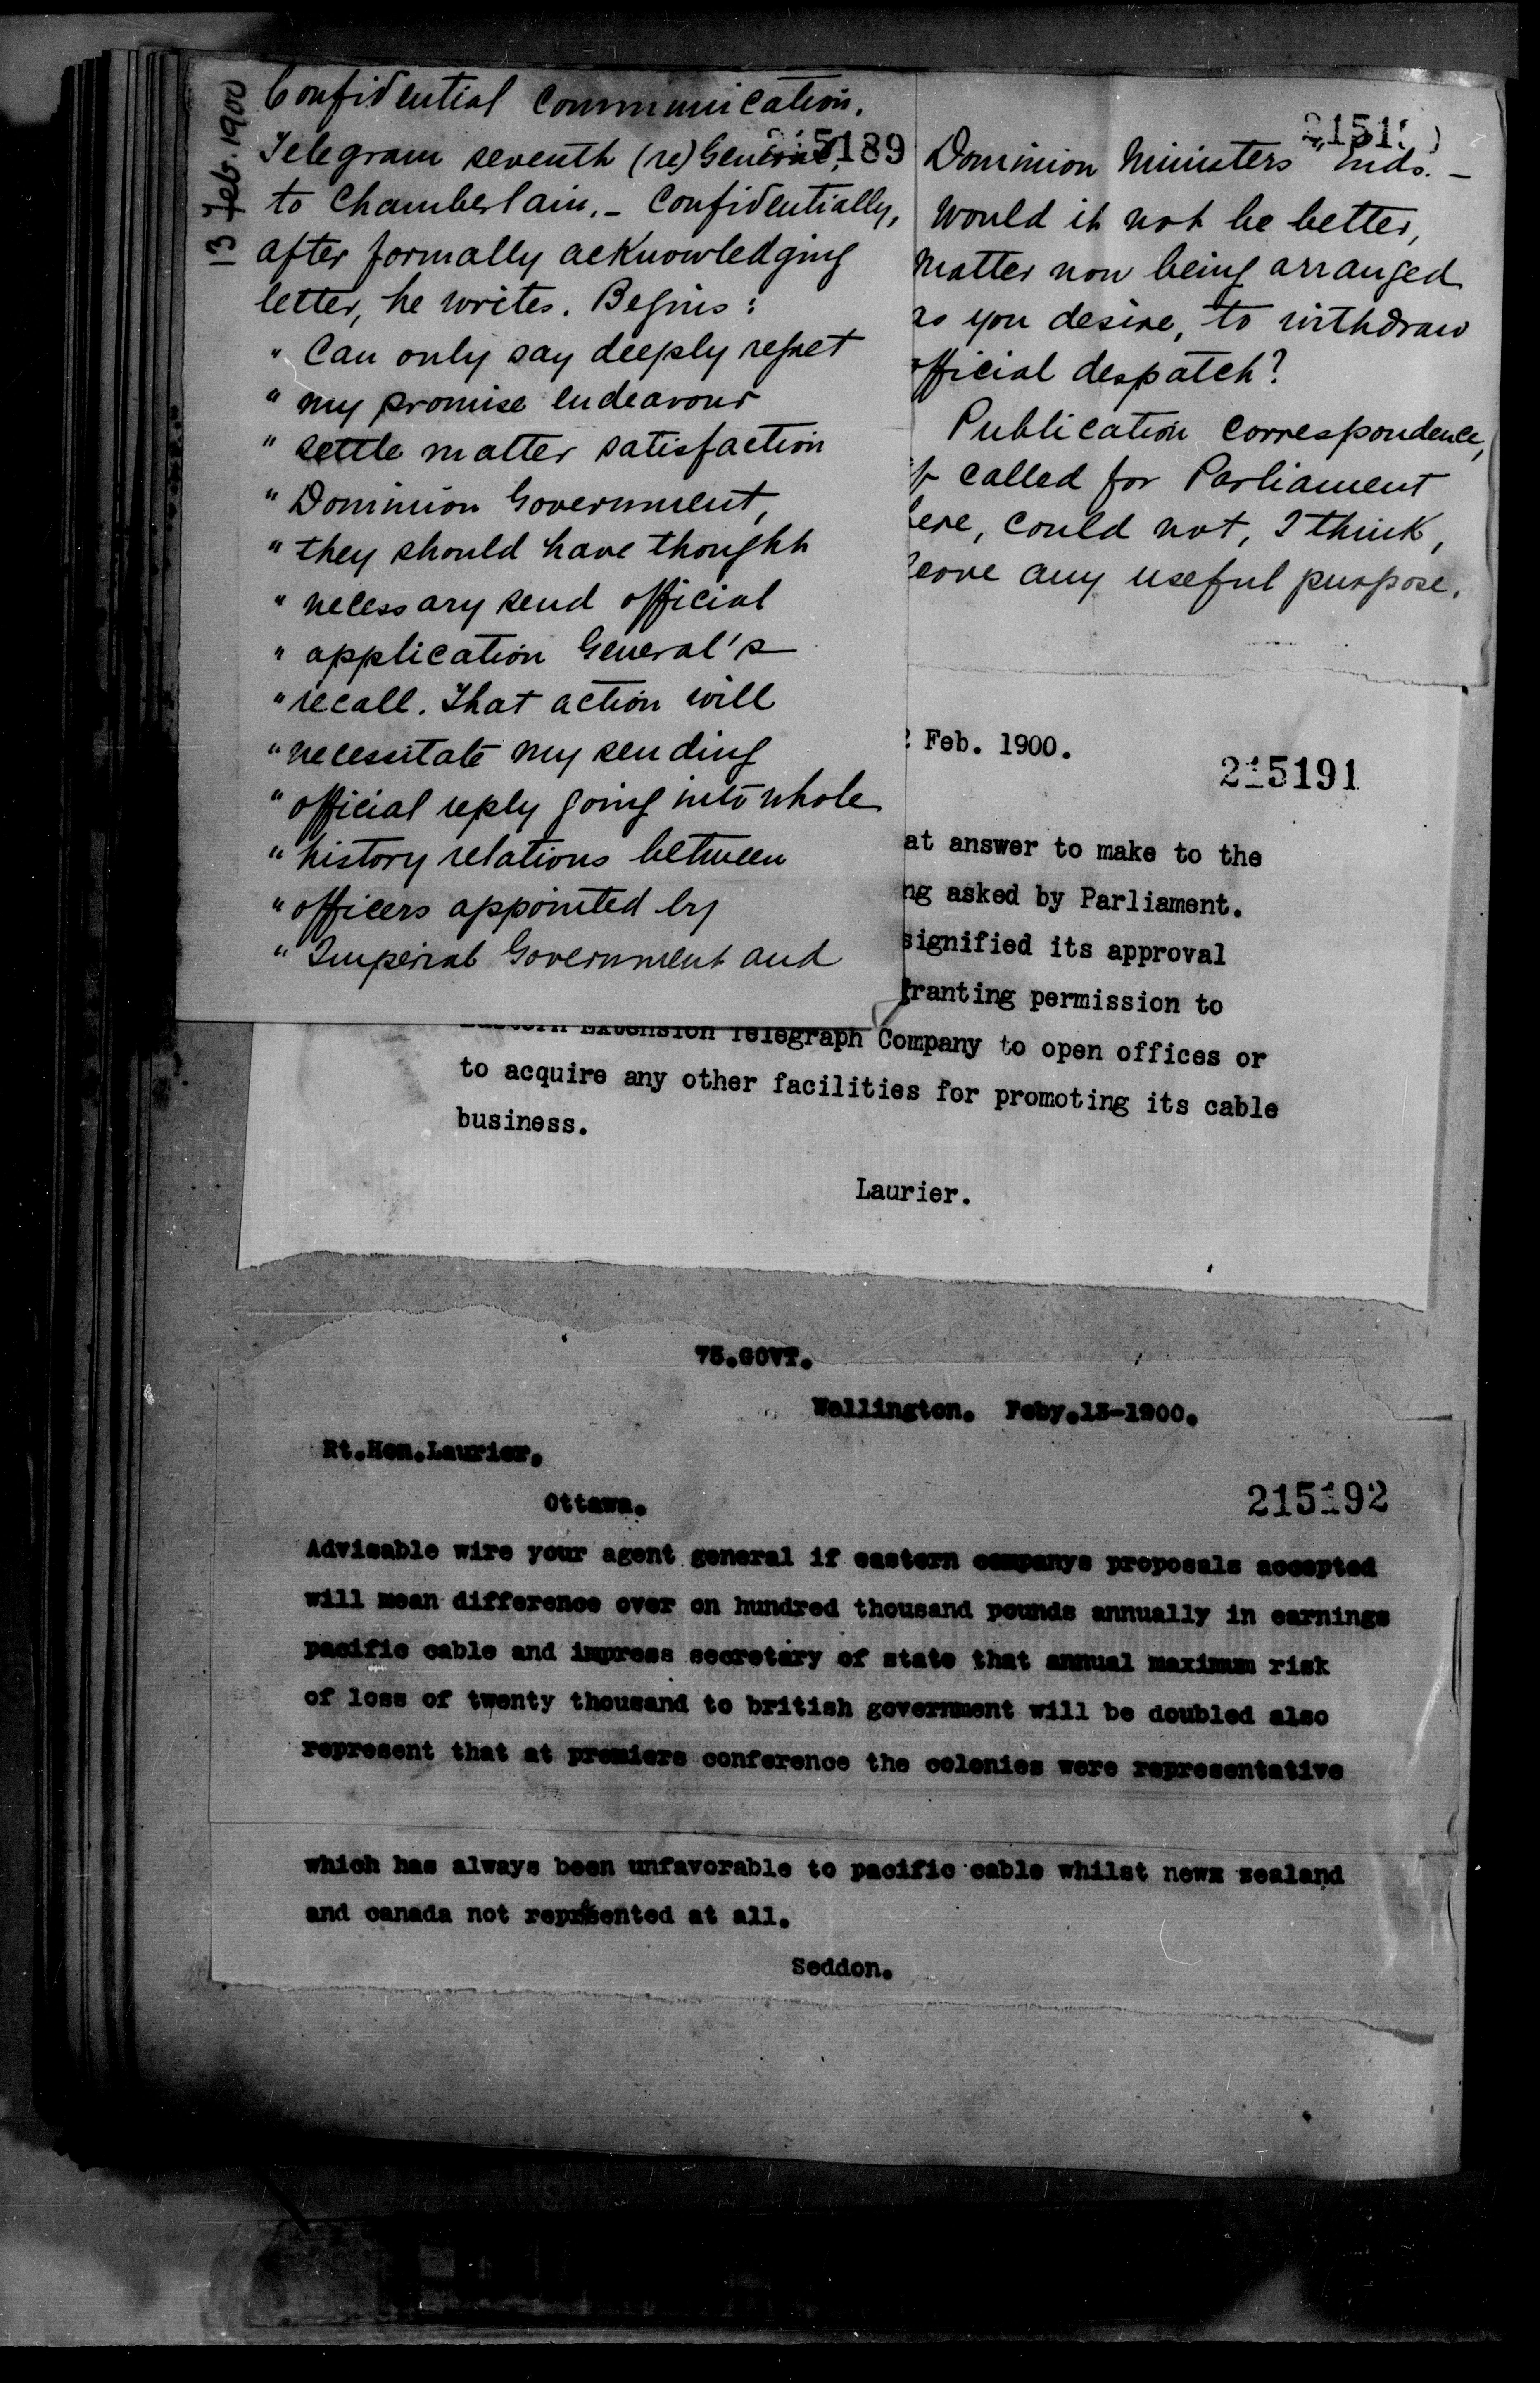 13 Feb. 1900
Confidential Communication.
215189
Telegram seventh (re) General,
to Chamberlain. - Confidentially,
after formally acknowledging
letter, he writes. Begins:
" Can only say deeply regret
" my promise endeavour
" settle matter satisfaction
" Dominion Government,
" they should have thought
" necessary send official
" application General's
" recall. That action will
" necessitate my sending
" official reply going into whole
" history relations between
" officers appointed by
" Imperial Government and
2151
Dominion Ministers" Ends. -
Would it not be better,
matter now being arranged
as you desire, to withdraw
official despatch?
Publication correspondence,
if called for Parliament
here, could not, I think,
serve any useful purpose.
Feb. 1900.
215191
at answer to make to the
ng asked by Parliament.
signified its approval
granting permission to
Eastern Extension Telegraph Company to open offices or
to acquire any other facilities for promoting its cable
business.
Laurier.
75.GOVT.
Wellington. Feby.13-1900.
Rt.Hon.Laurier.
Ottawa.
215192
Advisable wire your agent general if eastern companys proposals accepted
will mean difference over on hundred thousand pounds annually in earnings
pacific cable and impress secretary of state that annual maximum risk
of loss of twenty thousand to british government will be doubled also
represent that at premiers conference the colonies were representative
which has always been unfavorable to pacific cable whilst newz zealand
and canada not represented at all.
Seddon.